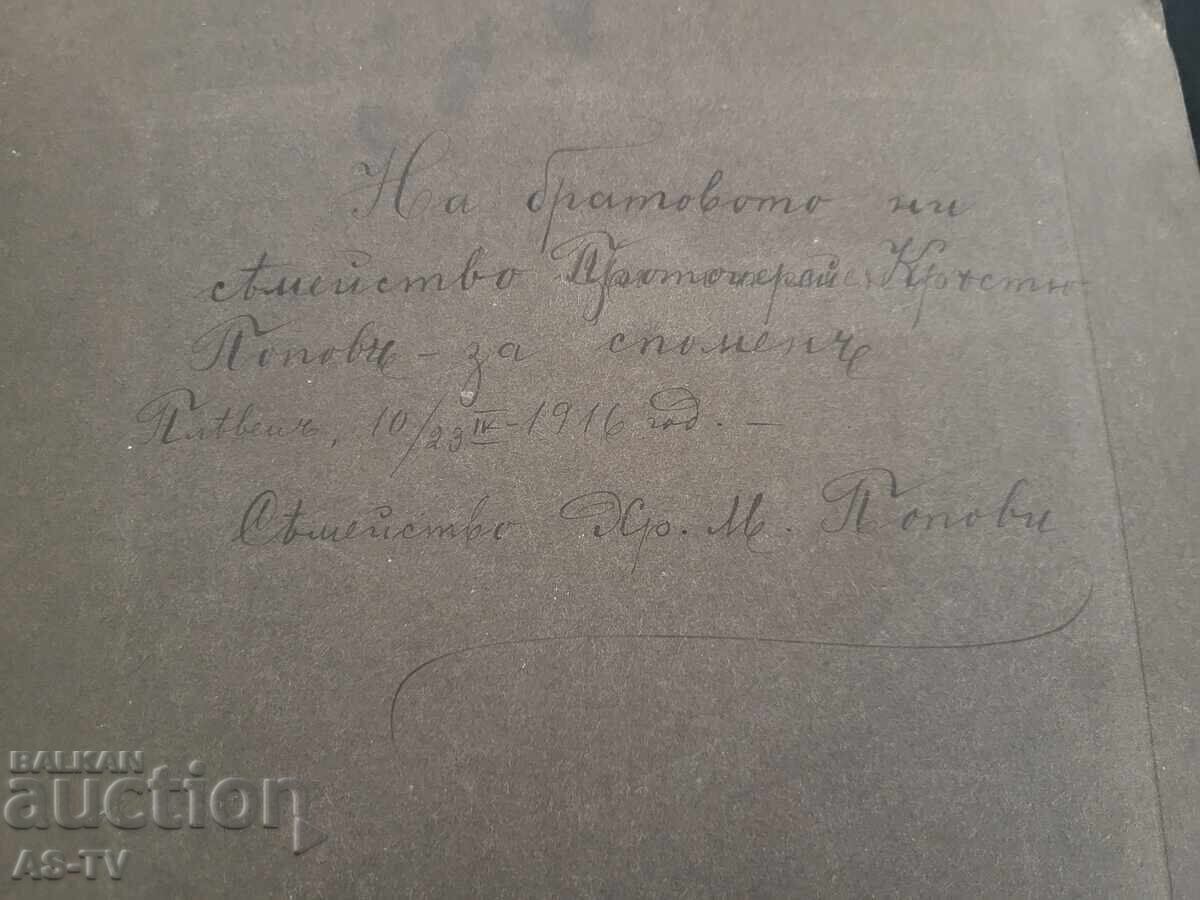 На братовото ни
сѣмейство Протоиерей Кръстю
Поповъ - за споменъ
Плѣвенъ, 10/23 IV - 1916 год. -
Сѣмейство Хр. М. Попови
BALKAN
auction
AS-TV